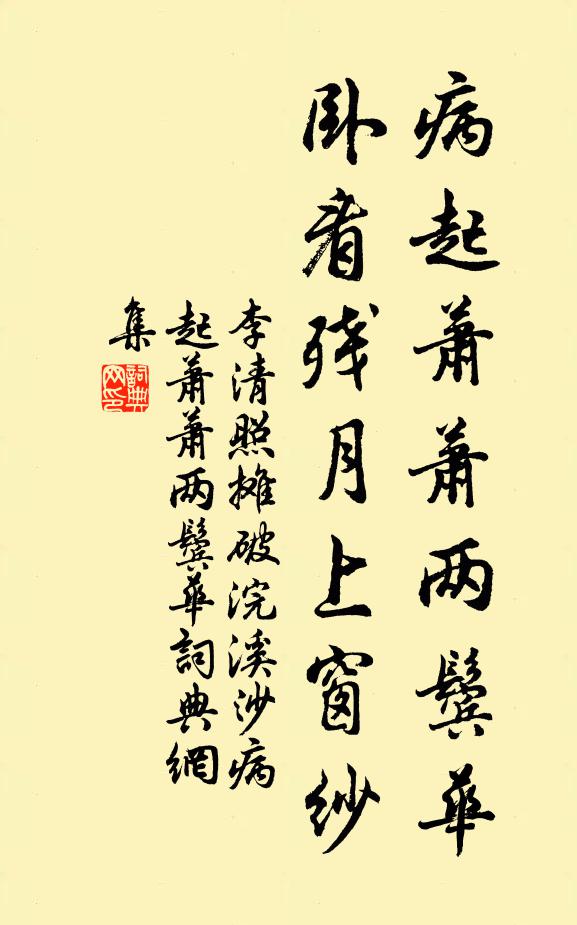 病起萧萧两鬓华
卧看残月上窗纱
李清照摊破浣溪沙病
起萧萧两鬓华词典网
集
詞典
网印